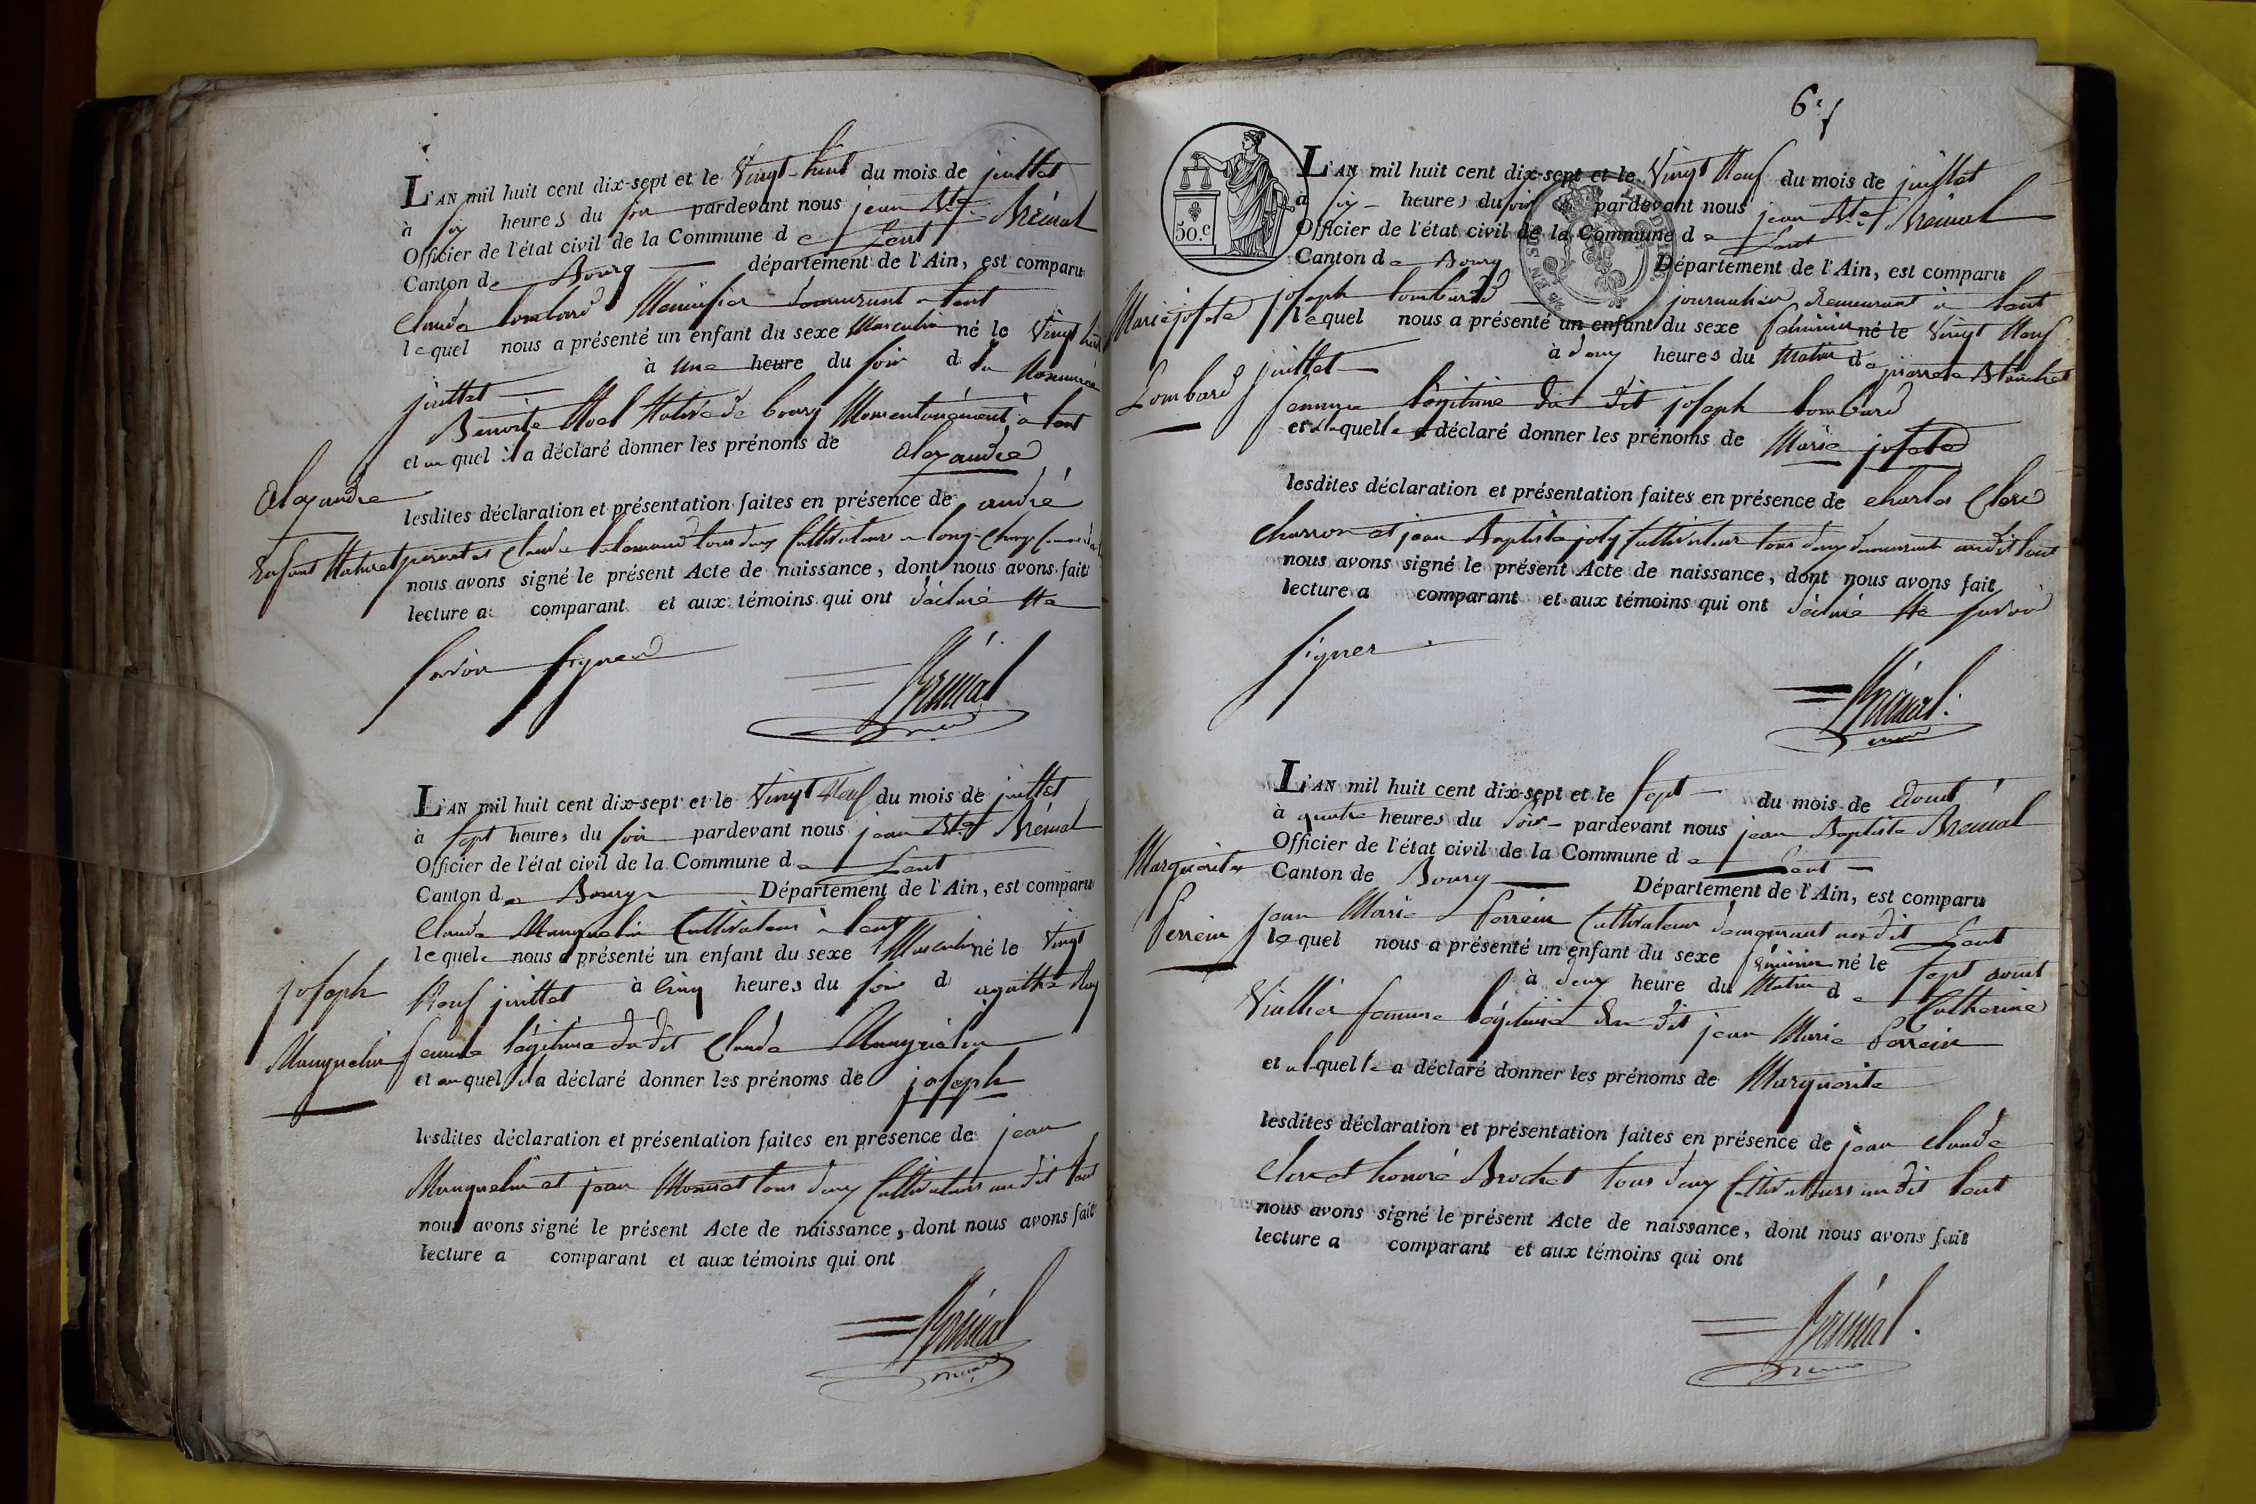 L'AN mil huit cent dix-sept et le Vingt-huit du mois de juillet
à six heures du soir pardevant nous jean Bte Brémal
Officier de l'état civil de la Commune de Lent
Canton de Bourg département de l'Ain, est comparu
Claude Lombard Menuisier demeurant a Lent
lequel nous a présenté un enfant du sexe Masculin né le Vingt huit
juillet à une heure du soir d la Nommée
Benoite Noel Native de bourg Momentanément a Lent
et au quel il a déclaré donner les prénoms de alexandre
alexandre
lesdites déclaration et présentation faites en présence de andré
Enfant Naturel
et Claude tous deux Cultivateurs a
nous avons signé le présent Acte de naissance, dont nous avons fait
lecture a comparant et aux témoins qui ont déclaré Ne
savoir signer
Brémal
maire
L'AN mil huit cent dix-sept et le Vingt Neuf du mois de juillet
à sept heures du soir pardevant nous jean Bte Brémal
Officier de l'état civil de la Commune de Lent
Canton de Bourg Département de l'Ain, est comparu
Claude Manguelin Cultivateur à Lent
lequel nous a présenté un enfant du sexe Masculin né le Vingt
joseph
Neuf juillet à Cinq heures du soir d agathe Ray
Manguelin
femme légitime du dit Claude Manguelin
et au quel il a déclaré donner les prénoms de joseph
lesdites déclaration et présentation faites en présence de jean
Manguelin et jean tous deux Cultivateurs au dit Lent
nous avons signé le présent Acte de naissance, dont nous avons fait
lecture a comparant et aux témoins qui ont
Brémal
maire
6
50.c
L'AN mil huit cent dix-sept et le Vingt Neuf du mois de juillet
à six heures du soir pardevant nous jean Bte Brémal
Officier de l'état civil de la Commune de Lent
Canton de Bourg Département de l'Ain, est comparu
Marie josete
joseph Lombard journalier demeurant à Lent
lequel nous a présenté un enfant du sexe féminin né le Vingt Neuf
Lombard
juillet à deux heures du Matin de pierrete Blanchet
femme légitime du dit joseph Lombard
et a laquelle a déclaré donner les prénoms de Marie josete
lesdites déclaration et présentation faites en présence de Charles Clerc
charron et jean Baptiste joly Cultivateur tous deux demeurants au dit Lent
nous avons signé le présent Acte de naissance, dont nous avons fait
lecture a comparant et aux témoins qui ont déclaré Ne savoir
signer
Brémal
maire
L'AN mil huit cent dix-sept et le sept du mois de aout
à quatre heures du soir pardevant nous jean Baptiste Brémal
Officier de l'état civil de la Commune de Lent
Marguerite
Canton de Bourg Département de l'Ain, est comparu
Perrein
jean Marie Perrein Cultivateur demeurant au dit Lent
lequel nous a présenté un enfant du sexe féminin né le sept aout
à deux heure du Matin de Catherine
Viallier femme légitime du dit jean Marie Perrein
et a laquelle a déclaré donner les prénoms de Marguerite
lesdites déclaration et présentation faites en présence de jean Claude
Clerc et honoré Brochet tous deux Cultivateurs au dit Lent
nous avons signé le présent Acte de naissance, dont nous avons fait
lecture a comparant et aux témoins qui ont
Brémal
maire